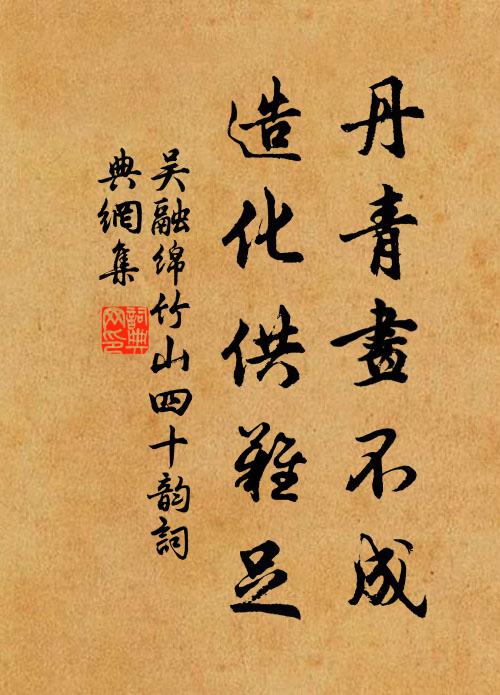 丹青畫不成
造化供難足
吴融绵竹山四十韵詞
典網集
詞典網印